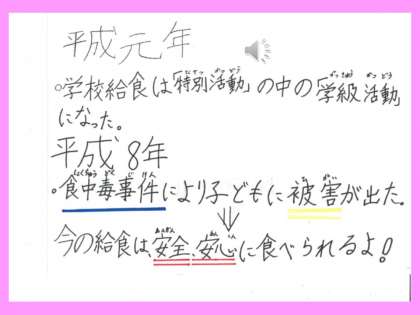 平成元年
○学校給食は「特別活動」の中の「学級活動」
になった。
平成8年
○食中毒事件により子どもに被害が出た。
今の給食は、安全、安心に食べられるよ！